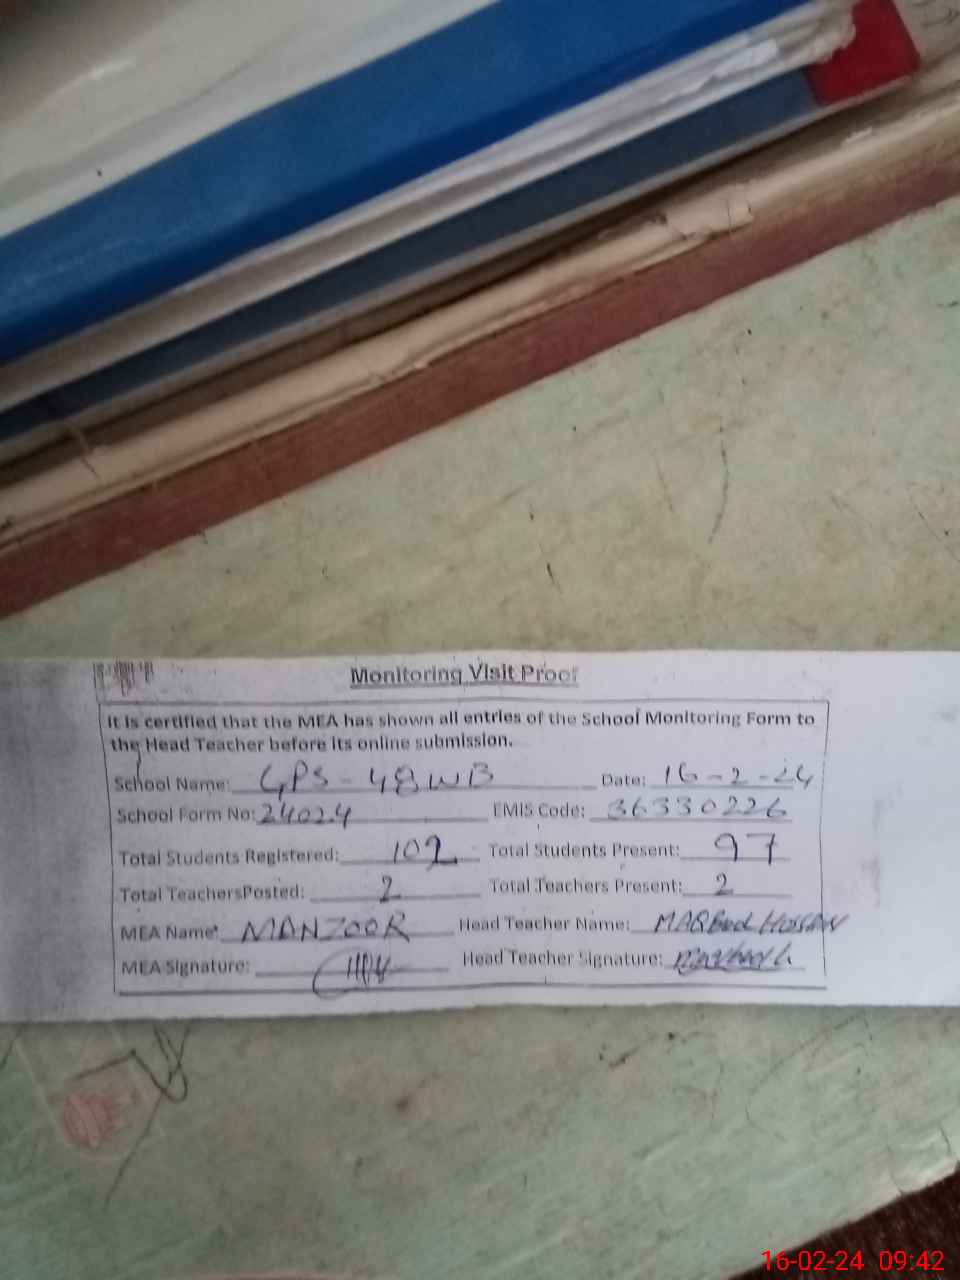 Monitoring Visit Proof
It is certified that the MEA has shown all entries of the School Monitoring Form to
the Head Teacher before its online submission.
School Name: GPS - 48WB Date: 16-2-24
School Form No: 24024 EMIS Code: 36330226
Total Students Registered: 102 Total Students Present: 97
Total TeachersPosted: 2 Total Teachers Present: 2
MEA Name: MANZOOR Head Teacher Name: MAQBool HUSSAIN
MEA Signature: Head Teacher Signature:
16-02-24 09:42